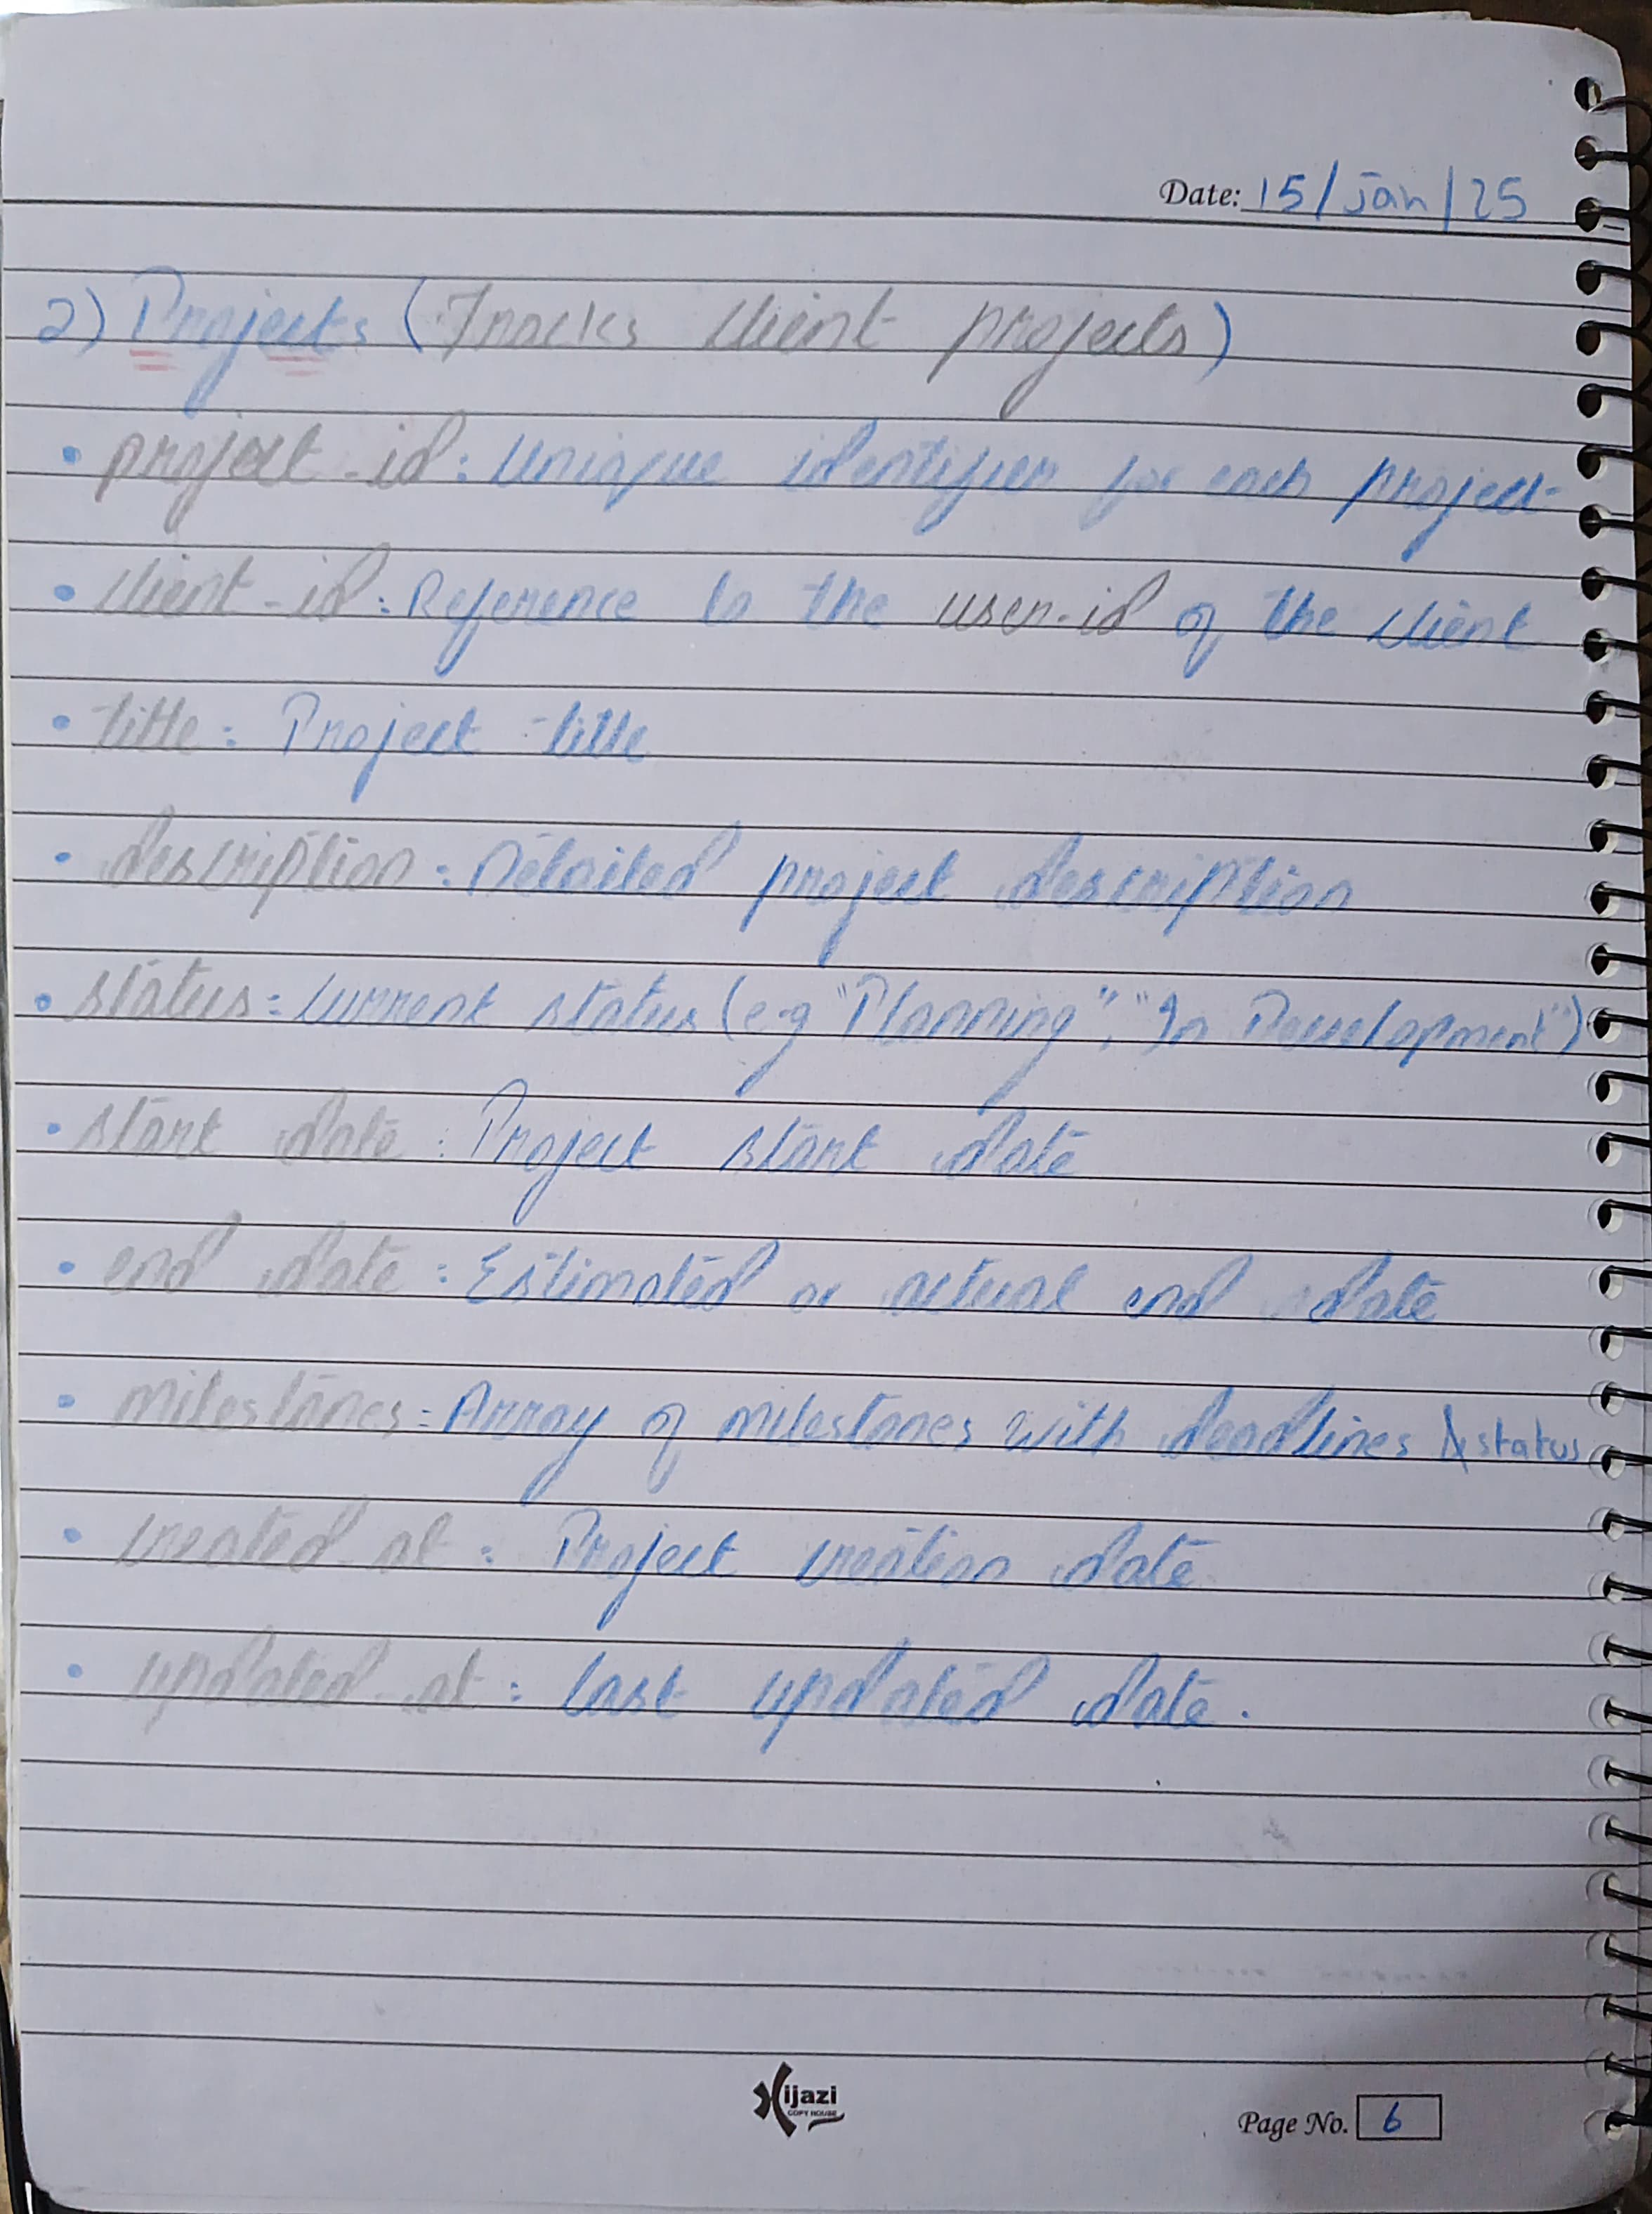 Date: 15/Jan/25
2) Projects (Tracks client projects)
• project-id: Unique identifier for each project
• client-id: Reference to the user-id of the client
• title: Project title
• description: Detailed project description
• status: Current status (e.g "Planning", "In Development")
• start date: Project start date
• end date: Estimated or actual end date
• milestones: Array of milestones with deadlines & status
• created-at: Project creation date
• updated-at: last updated date.
Hijazi
COPY HOUSE
Page No. 6